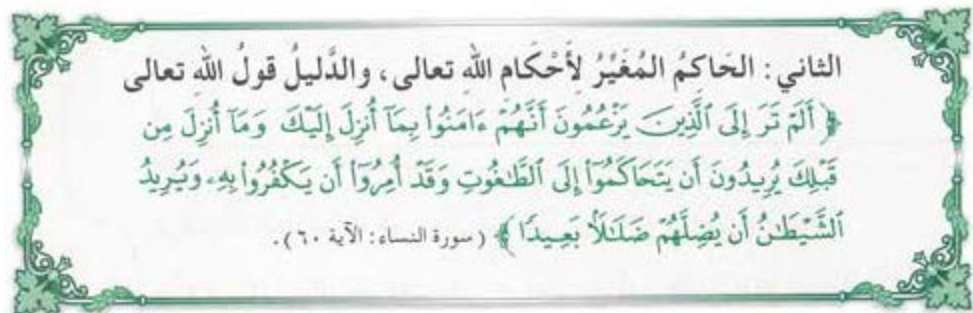 الثاني: الحَاكِمُ المُغَيِّرُ لِأَحْكَامِ اللهِ تعالى، والدَّليلُ قولُ اللهِ تعالى
﴿ أَلَمْ تَرَ إِلَى ٱلَّذِينَ يَزْعُمُونَ أَنَّهُمْ ءَامَنُوا۟ بِمَآ أُنزِلَ إِلَيْكَ وَمَآ أُنزِلَ مِن
قَبْلِكَ يُرِيدُونَ أَن يَتَحَاكَمُوٓا۟ إِلَى ٱلطَّٰغُوتِ وَقَدْ أُمِرُوٓا۟ أَن يَكْفُرُوا۟ بِهِۦ وَيُرِيدُ
ٱلشَّيْطَٰنُ أَن يُضِلَّهُمْ ضَلَٰلًۢا بَعِيدًا ﴾ (سورة النساء: الآية ٦٠).